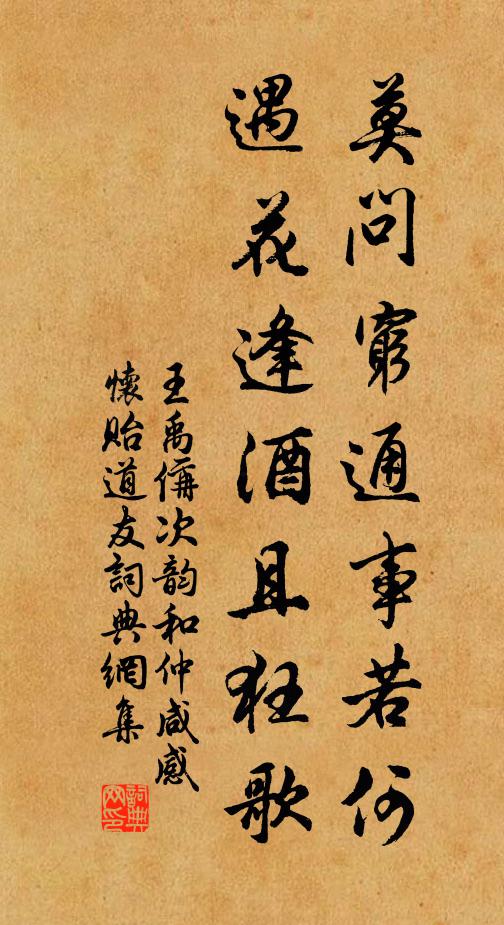 莫問窮通事若何
遇花逢酒且狂歌
王禹偁次韵和仲咸感
懷貽道友詞典網集
詞典
网印